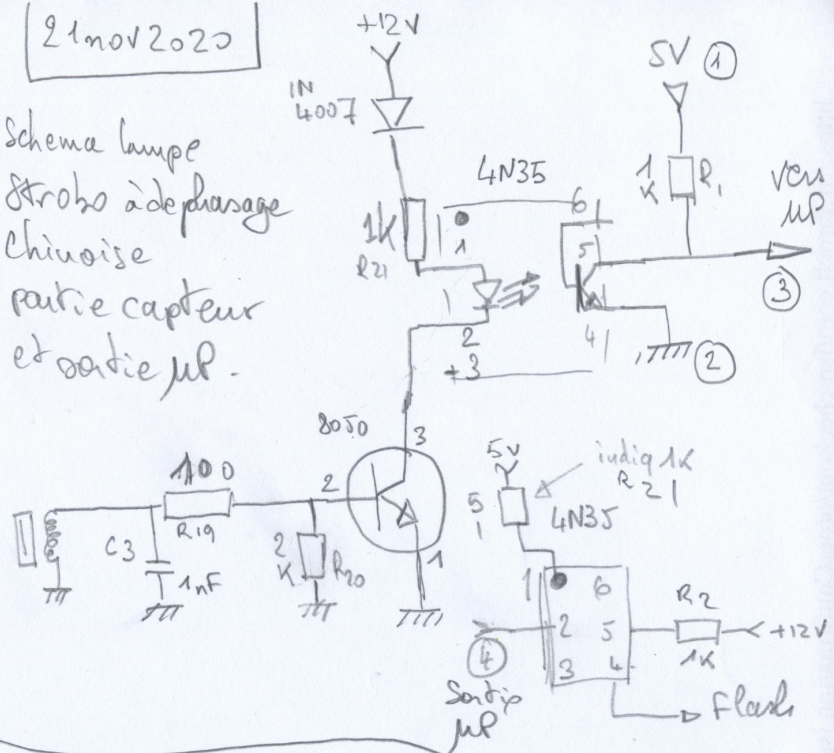 21 nov 2020
Schema lampe
Strobo à dephasage
Chinoise
partie capteur
et sortie µP.
+12V
IN
4007
1K
R21
4N35
1
2
3
6
5
4
5V ①
1
K
R1
vers
µP
③
②
8050
3
2
1
100
R19
C3
1nF
2
K
R20
5V
indiq 1K
R21
51
4N35
1
2
3
6
5
4
R2
1K
+12V
④
Sortie
µP
Flash